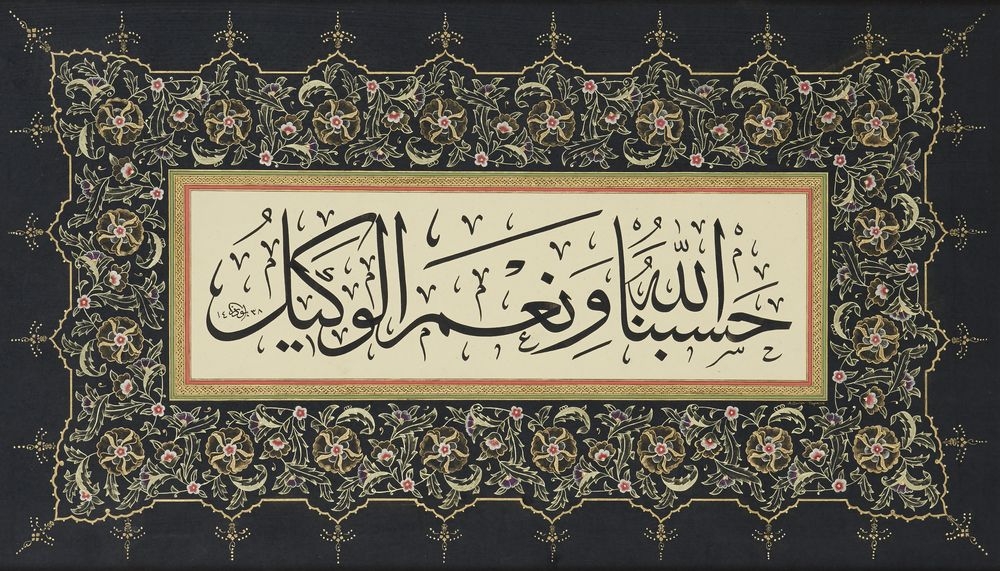 حَسْبُنَا اللهُ وَنِعْمَ الْوَكِيلُ
١٤٣٨